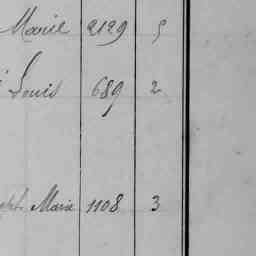 Marie 2129 5
Louis 689 2
Marie 1108 3